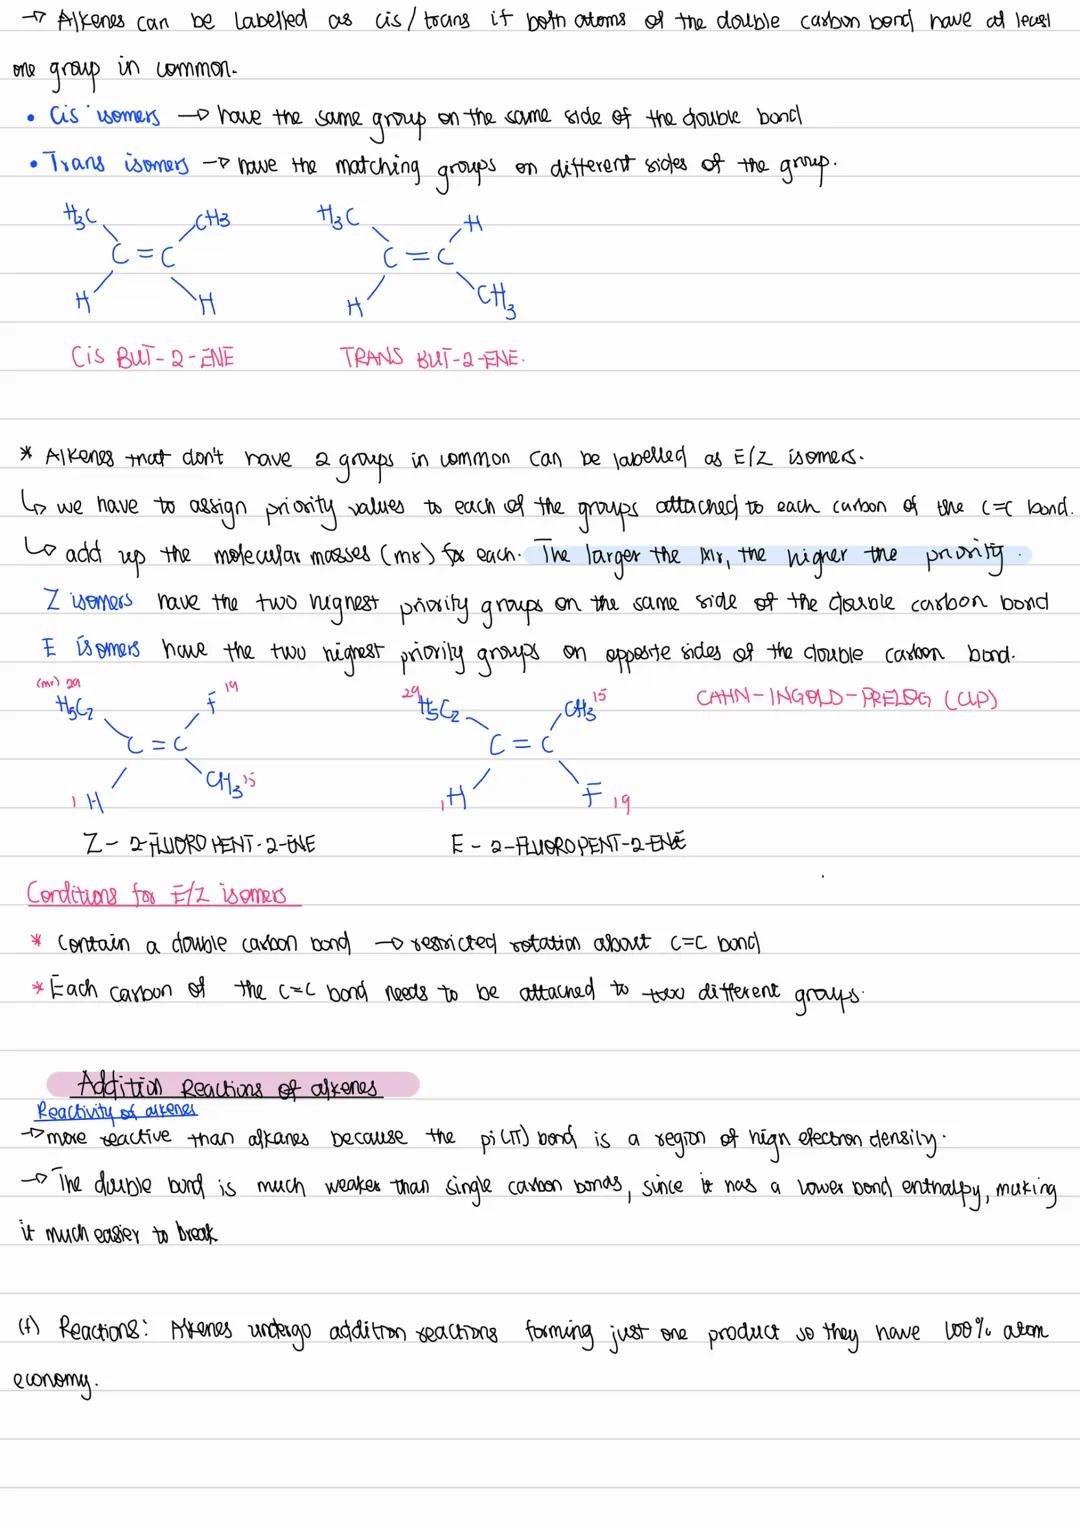 → Alkenes can be labelled as cis/trans if both atoms of the double carbon bond have at least
one group in common.
• Cis isomers → have the same group on the same side of the double bond
• Trans isomers → have the matching groups on different sides of the group.
H3C CH3 H3C H
C=C C=C
H H H CH3
Cis BUT-2-ENE TRANS BUT-2-ENE.
* Alkenes that don't have 2 groups in common can be labelled as E/Z isomers.
↳ we have to assign priority values to each of the groups attached to each carbon of the C=C bond.
↳ add up the molecular masses (mr) for each. The larger the Mr, the higher the priority.
Z isomers have the two highest priority groups on the same side of the double carbon bond
E isomers have the two highest priority groups on opposite sides of the double carbon bond.
(mr) 29 19 29 15
H5C2 F H5C2 CH3 CAHN-INGOLD-PRELOG (CIP)
C=C C=C
1 H CH3 15 1 H F 19
Z-2-FLUOROPENT-2-ENE E-2-FLUOROPENT-2-ENE
Conditions for E/Z isomers
* Contain a double carbon bond → restricted rotation about C=C bond
* Each carbon of the C=C bond needs to be attached to two different groups.
Addition Reactions of alkenes
Reactivity of alkenes
→ more reactive than alkanes because the pi (π) bond is a region of high electron density.
→ The double bond is much weaker than single carbon bonds, since it has a lower bond enthalpy, making
it much easier to break
(f) Reactions: Alkenes undergo addition reactions forming just one product so they have 100% atom
economy.